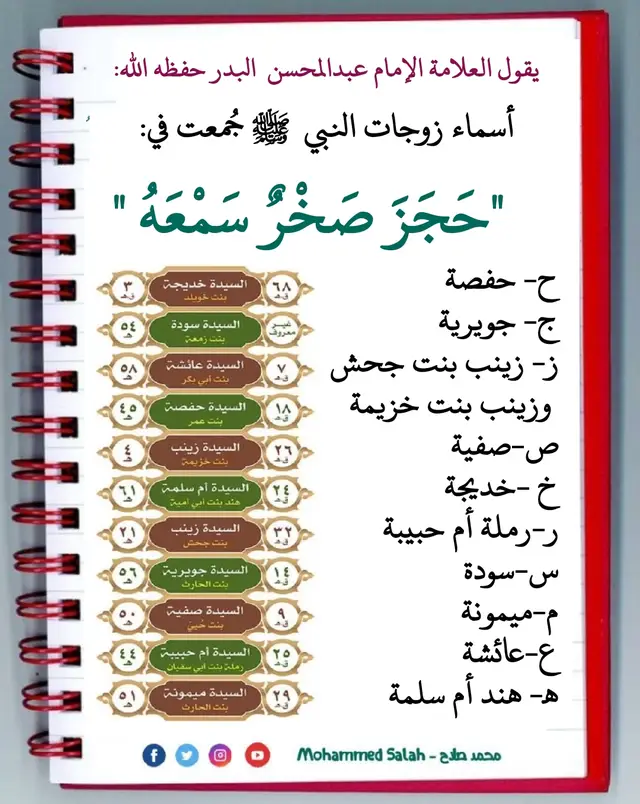 يقول العلامة الإمام عبدالمحسن البدر حفظه الله:
أسماء زوجات النبي ﷺ جُمعت في:
"حَجَزَ صَخْرٌ سَمْعَهُ"
ح- حفصة
ج- جويرية
ز- زينب بنت جحش
وزينب بنت خزيمة
ص-صفية
خ -خديجة
ر-رملة أم حبيبة
س-سودة
م-ميمونة
ع-عائشة
ه- هند أم سلمة
٦٨ ق.هـ السيدة خديجة ٣ ق.هـ
بنت خويلد
غير معروف السيدة سودة ٥٤ هـ
بنت زمعة
٧ ق.هـ السيدة عائشة ٥٨ هـ
بنت أبي بكر
١٨ ق.هـ السيدة حفصة ٤٥ هـ
بنت عمر
٢٦ ق.هـ السيدة زينب ٤ هـ
بنت خزيمة
٢٤ ق.هـ السيدة أم سلمة ٦١ هـ
هند بنت أبي أمية
٣٢ ق.هـ السيدة زينب ٢١ هـ
بنت جحش
١٤ ق.هـ السيدة جويرية ٥٦ هـ
بنت الحارث
٩ ق.هـ السيدة صفية ٥٠ هـ
بنت حُييّ
٢٥ ق.هـ السيدة أم حبيبة ٤٤ هـ
رملة بنت أبي سفيان
٢٩ ق.هـ السيدة ميمونة ٥١ هـ
بنت الحارث
محمد صلاح - Mohammed Salah